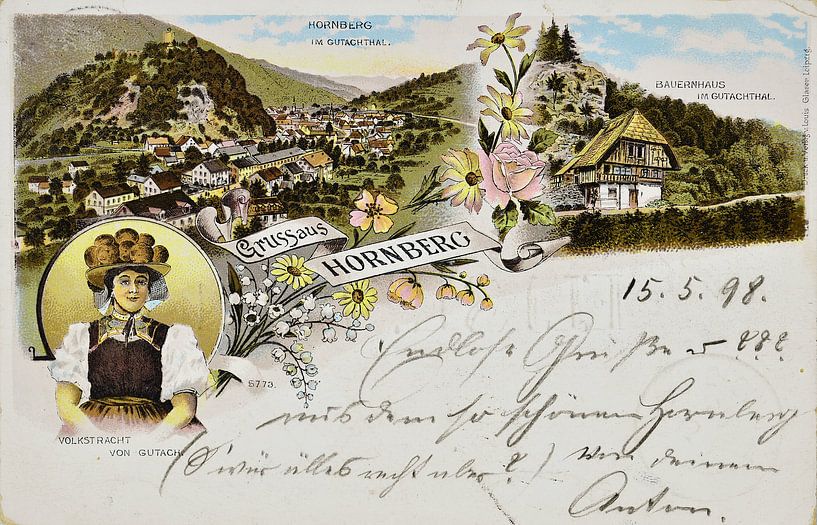 HORNBERG
IM GUTACHTHAL.
BAUERNHAUS
IM GUTACHTHAL.
Louis Glaser Leipzig.
Gruss aus
HORNBERG
15.5.98.
Endlose Grüße u ???
aus dem so schönen Hornberg
(S'wär alles recht aber?) Von deinem
Anton.
5773.
VOLKSTRACHT
VON GUTACH.